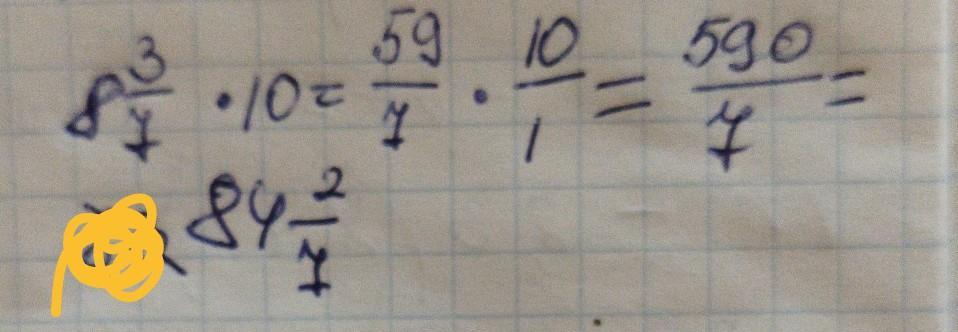 8 3/7 · 10 = 59/7 · 10/1 = 590/7 =
84 2/7